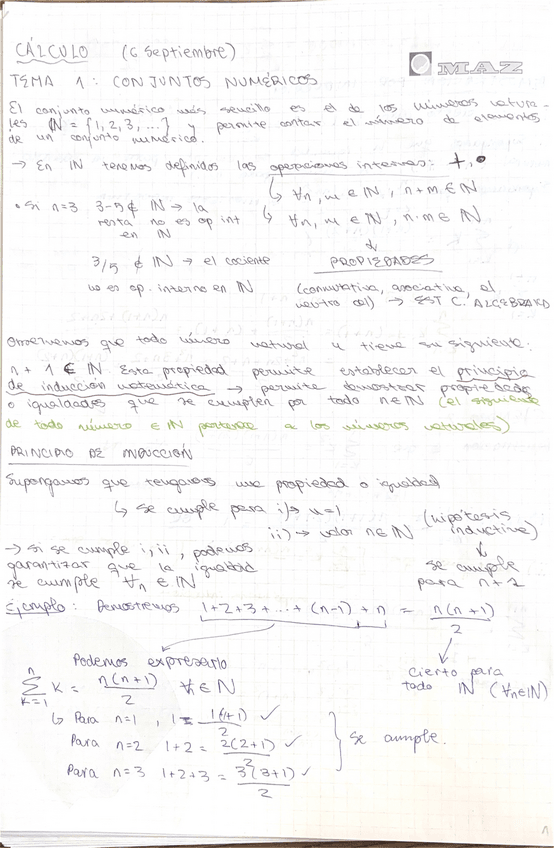 CÁLCULO (6 Septiembre)
MAZ
TEMA 1: CONJUNTOS NUMÉRICOS
El conjunto numérico más sencillo es el de los números natura-
les ℕ = {1, 2, 3, ...} y permite contar el número de elementos
de un conjunto numérico.
→ En ℕ tenemos definidos las operaciones internas: +, •
↳ ∀n, m ∈ ℕ, n+m ∈ ℕ
• Si n=3 3-5 ∉ ℕ → la
resta no es op int
en ℕ
↳ ∀n, m ∈ ℕ, n·m ∈ ℕ
3/5 ∉ ℕ → el cociente
no es op. interno en ℕ
PROPIEDADES
(conmutativa, asociativa, el
neutro) → EST C. ALGEBRAICO
Observemos que todo número natural n tiene su siguiente:
n + 1 ∈ ℕ. Esta propiedad permite establecer el principio
de inducción matemática → permite demostrar propiedades
o igualdades que se cumplen por todo n ∈ ℕ (el siguiente
de todo número ∈ ℕ pertenece a los números naturales)
PRINCIPIO DE INDUCCIÓN
Supongamos que tengamos una propiedad o igualdad
↳ se cumple para i) → n=1
ii) → valor n ∈ ℕ (hipótesis
inductiva)
↓
se cumple
para n+1
→ si se cumple i, ii, podemos
garantizar que la igualdad
se cumple ∀n ∈ ℕ
Ejemplo: Demostremos 1+2+3+...+(n-1)+n = n(n+1)/2
Podemos expresarlo
∑_{k=1}^{n} k = n(n+1)/2 ∀ ∈ ℕ
cierto para
todo ℕ (∀n∈ℕ)
↳ Para n=1, 1 = 1(1+1)/2 ✓
Para n=2 1+2 = 2(2+1)/2 ✓
Para n=3 1+2+3 = 3(3+1)/2 ✓
} se cumple.
1